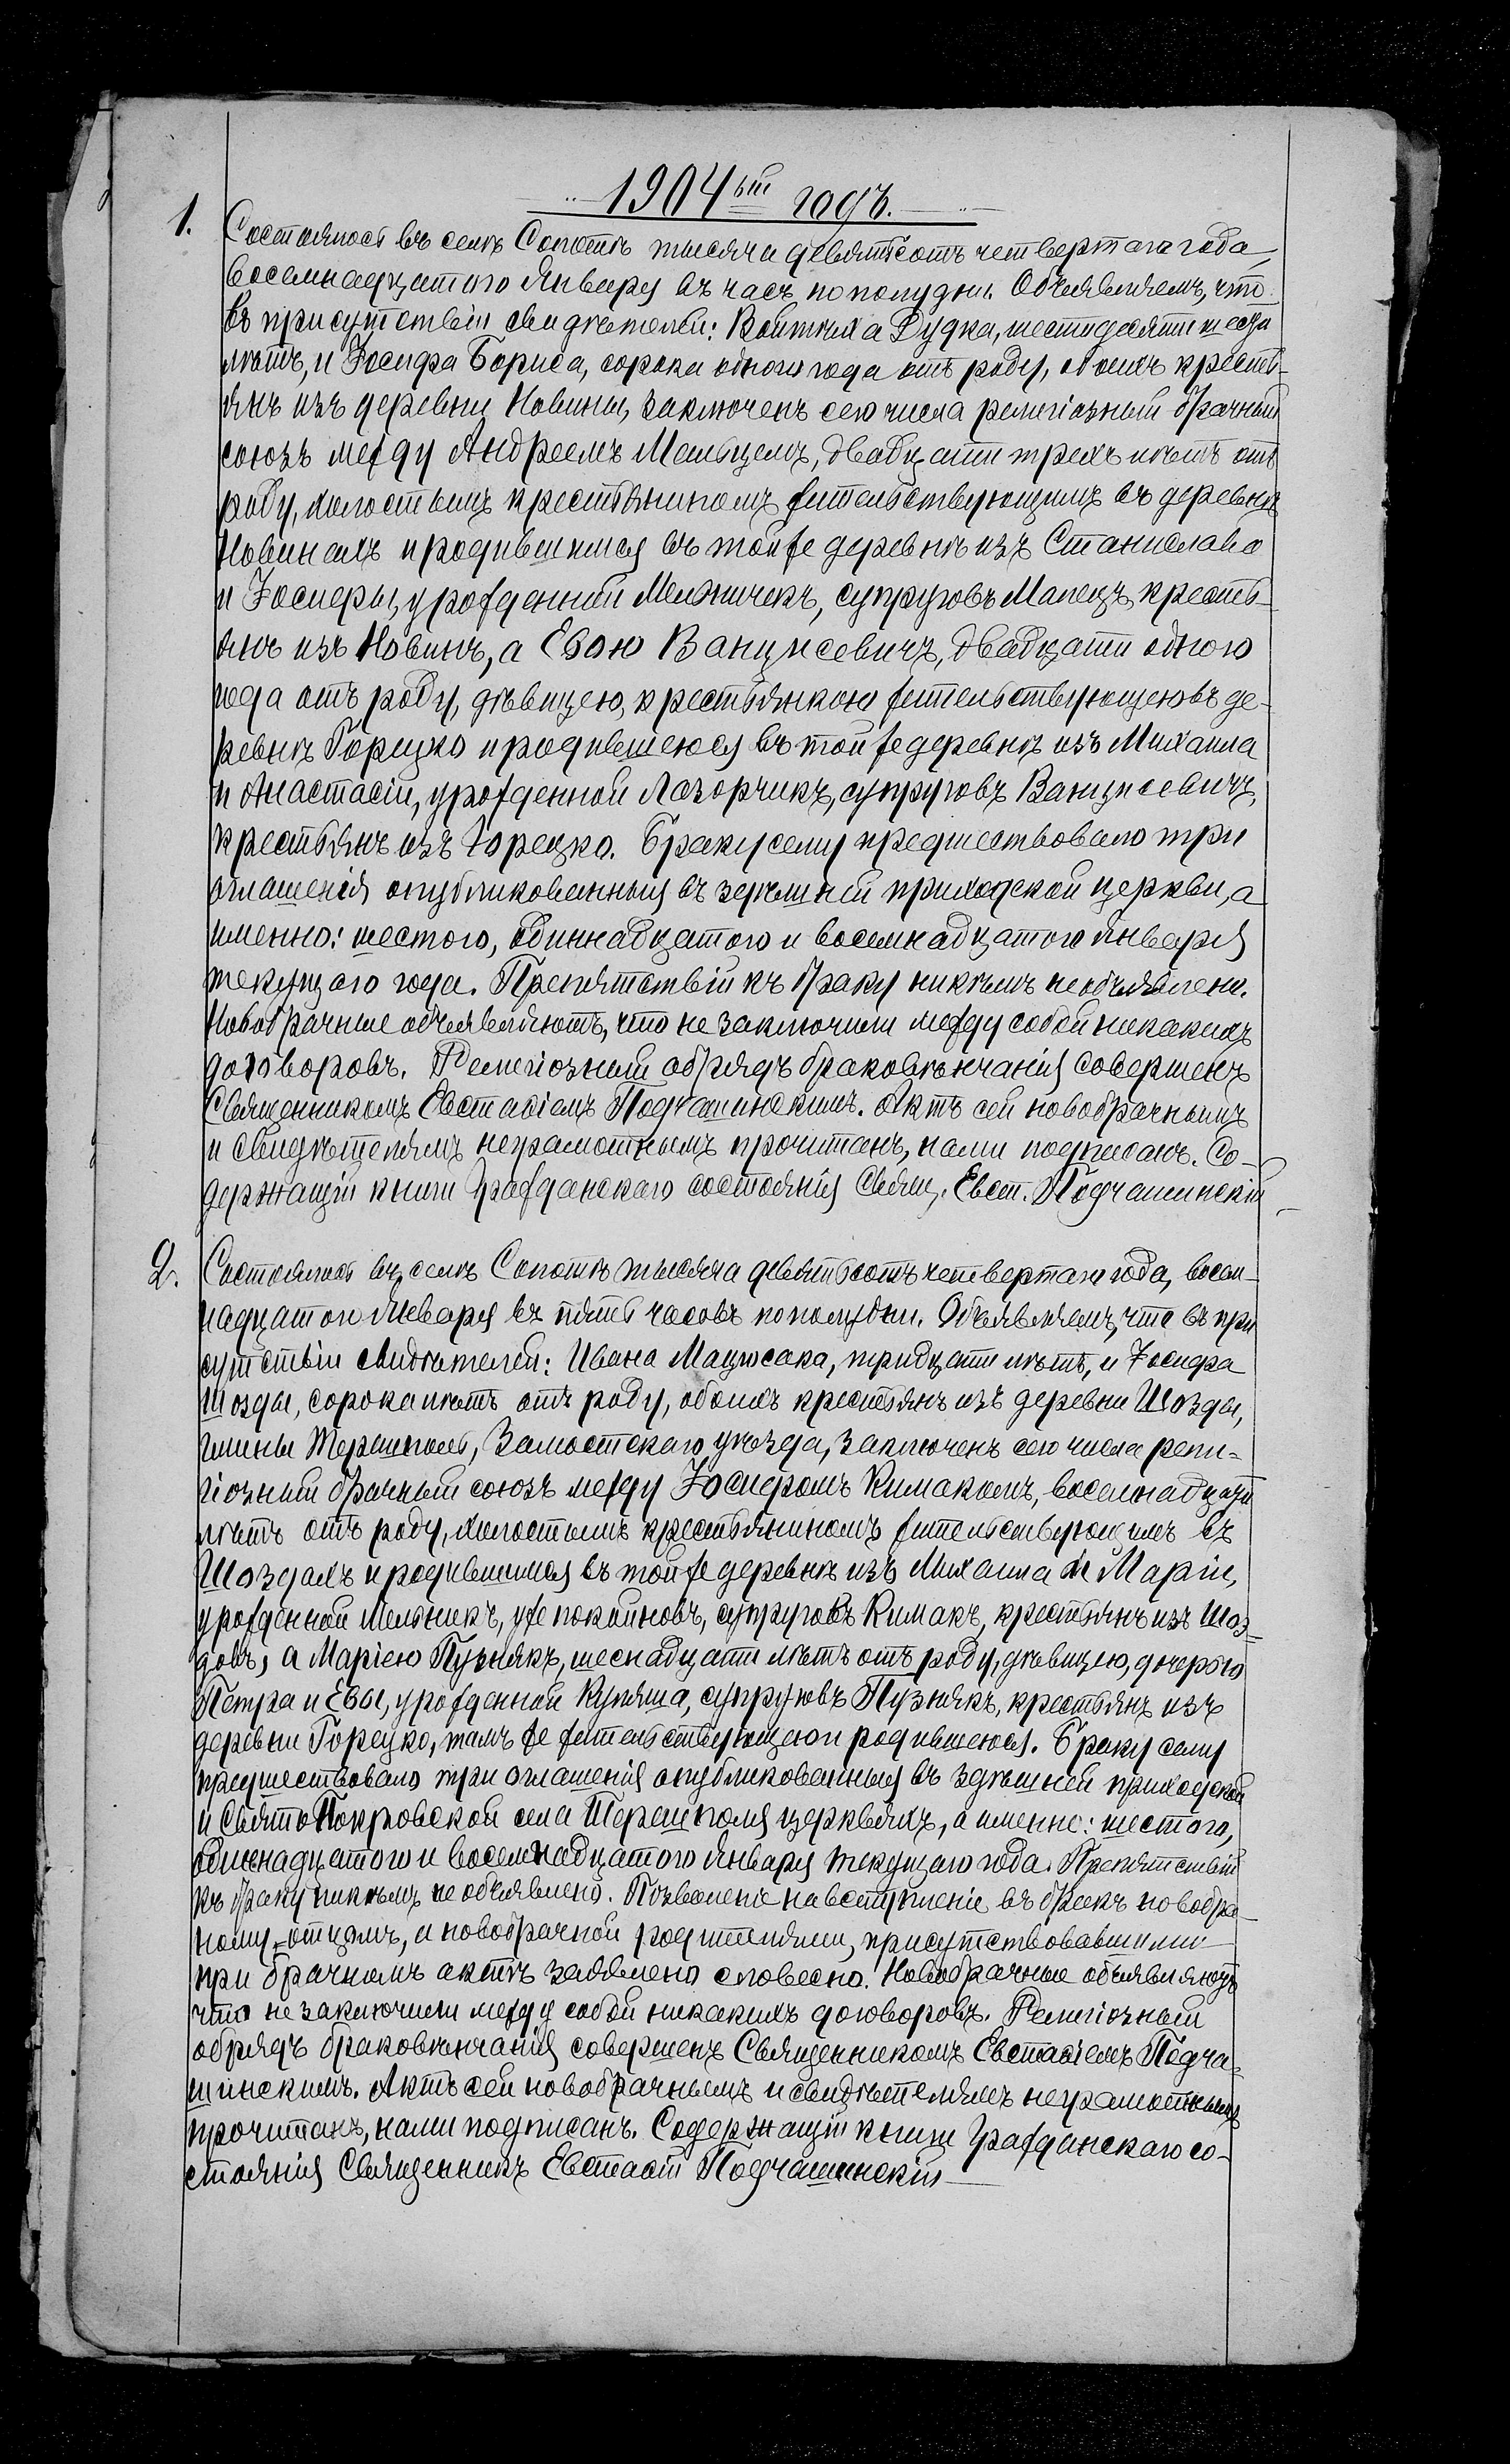 1904ый годъ.
1. Состоялось въ селѣ Сопотѣ тысяча девятьсотъ четвертаго года
восемнадцатого Января въ часъ пополудни. Объявляемъ, что
въ присутствіи свидѣтелей: Войтѣха Дудка, шестидесяти шести
лѣтъ, и Іосифа Бориса, сорока одного года отъ роду, обоихъ кресть-
янъ изъ деревни Новины, заключенъ сего числа религіозный брачный
союзъ между Андреемъ Мальцемъ, двадцати трехъ лѣтъ отъ
роду, холостымъ крестьяниномъ жительствующимъ въ деревнѣ
Новинахъ и родившимся въ той же деревнѣ изъ Станислава
и Іосифы, урожденной Мельничекъ, супруговъ Малецъ, кресть-
янъ изъ Новинъ, а Евою Ванцисевичъ, двадцати одного
года отъ роду, дѣвицею, крестьянкою жительствующею въ де-
ревнѣ Горецко и родившеюся въ той же деревнѣ изъ Михаила
и Анастасіи, урожденной Лазорчикъ, супруговъ Ванцисевичъ,
крестьянъ изъ Горецко. Браку сему предшествовало три
оглашенія опубликованныя въ здѣшней приходской церкви, а
именно: шестого, одиннадцатого и восемнадцатого Января
текущаго года. Препятствій къ браку никѣмъ не объявлено.
Новобрачные объявляютъ, что не заключили между собой никакихъ
договоровъ. Религіозный обрядъ браковѣнчанія совершенъ
Священникомъ Евстаѳіемъ Подчашинскимъ. Актъ сей новобрачнымъ
и свидѣтелямъ неграмотнымъ прочитанъ, нами подписанъ. Со-
держащій книги Гражданскаго состоянія Свящ. Евст. Подчашинскій
2. Состоялось въ селѣ Сопотѣ тысяча девятьсотъ четвертаго года, восем-
надцатого Января въ пять часовъ пополудни. Объявляемъ, что въ при
сутствіи свидѣтелей: Ивана Мацюсака, тридцати лѣтъ, и Іосифа
Шозды, сорока лѣтъ отъ роду, обоихъ крестьянъ изъ деревни Шозды,
гмины Терешполь, Замостскаго уѣзда, заключенъ сего числа рели-
гіозный брачный союзъ между Іосифомъ Кимакомъ, восемнадцати
лѣтъ отъ роду, холостымъ крестьяниномъ жительствующимъ въ
Шоздахъ и родившимся въ той же деревнѣ изъ Михаила и Маріи,
урожденной Мельникъ, уже покойновъ, супруговъ Кимакъ, крестьянъ изъ Шоз-
довъ, а Маріею Пузнякъ, шеснадцати лѣтъ отъ роду, дѣвицею, дочерью
Петра и Евы, урожденной Купяша, супруговъ Пузнякъ, крестьянъ изъ
деревни Горецко, тамъ же жительствующею и родившеюся. Браку сему
предшествовало три оглашенія опубликованныя въ здѣшней приходской
и СвятоПокровской села Терешполя церквяхъ, а именно: шестого,
одиннадцатого и восемнадцатого Января текущаго года. Препятствій
къ браку никѣмъ не объявлено. Позволеніе на вступленіе въ бракъ новобра-
ному отцомъ, и новобрачной родителями, присутствовавшими
при брачномъ актѣ заявлено словесно. Новобрачные объявляютъ
что не заключили между собой никакихъ договоровъ. Религіозный
обрядъ браковѣнчанія совершенъ Священникомъ Евстаѳіемъ Подча-
шинскимъ. Актъ сей новобрачнымъ и свидѣтелямъ неграмотнымъ
прочитанъ, нами подписанъ. Содержащій книги Гражданскаго со-
стоянія Священникъ Евстаѳій Подчашинскій